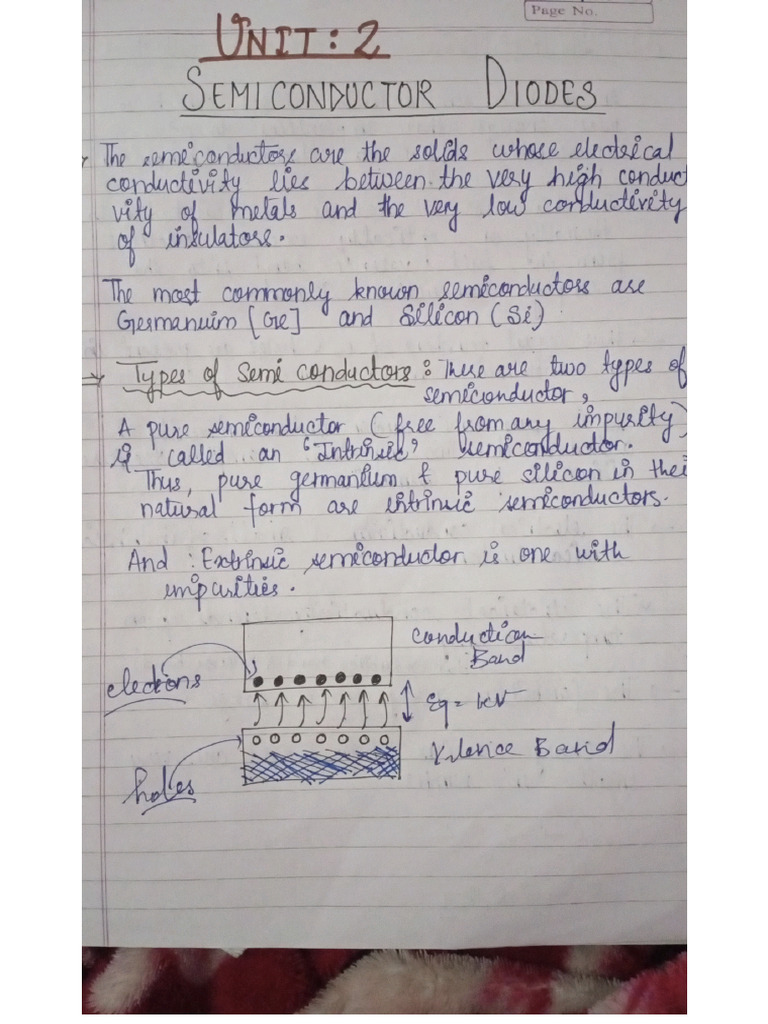 Page No.
UNIT: 2
SEMICONDUCTOR DIODES
The semiconductors are the solids whose electrical
conductivity lies between the very high conduc
vity of metals and the very low conductivity
of insulators.
The most commonly known semiconductors are
Germanuim [Ge] and Silicon (Si)
Types of Semi conductors: There are two types of
semiconductor,
A pure semiconductor (free from any impurity)
is called an "Intrinsic" semiconductor.
Thus, pure germanium & pure silicon in thei
natural form are intrinsic semiconductors.
And : Extrinsic semiconductor is one with
impurities.
Conduction
Band
electrons
Eg =
Valence Band
holes